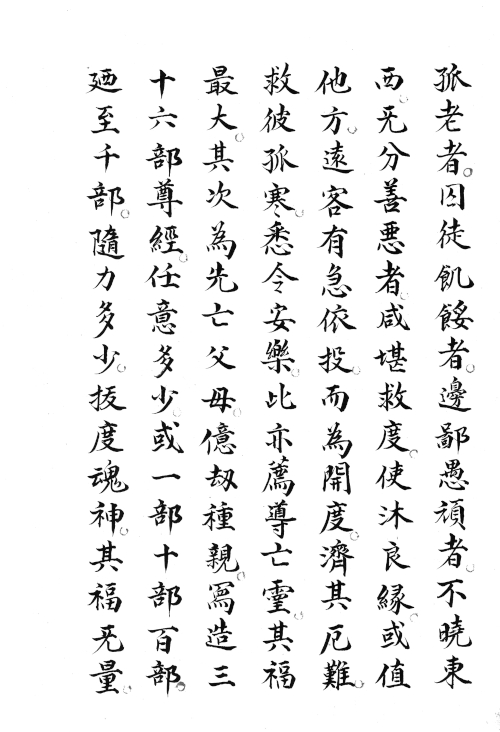 孤老者。囚徒飢餒者。邊鄙愚頑者。不曉東
西。旡分善惡者。咸堪救度。使沐良緣。或值
他方。遠客有急依投。而為開度。濟其厄難。
救彼孤寒。悉令安樂。比亦薦導亡靈。其福
最大。其次為先亡父母。億劫種親。寫造三
十六部尊經。任意多少。或一部十部百部。
廼至千部。隨力多少。拔度魂神。其福旡量。